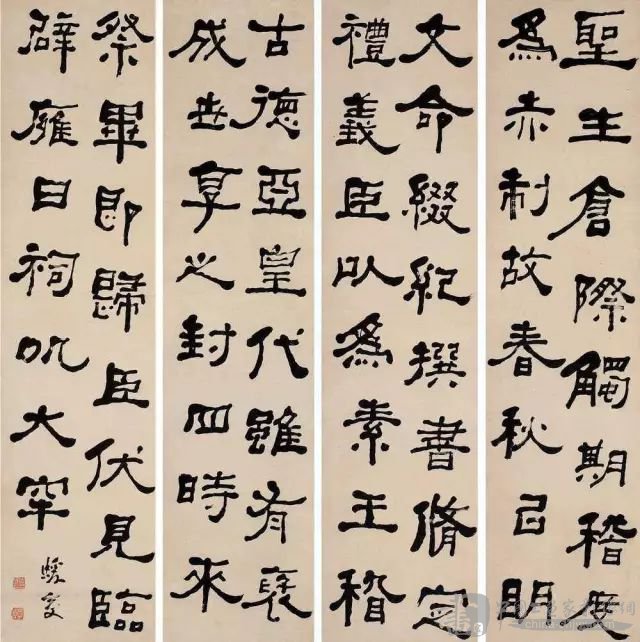 聖生倉際觸期稽度
爲赤制故春秋㠯明
文命綴紀撰書脩定
禮義臣以爲素王稽
古德亞皇代雖有褒
成世享之封四時來
祭畢即歸臣伏見臨
辟廱日祠孔大牢
蝯叟